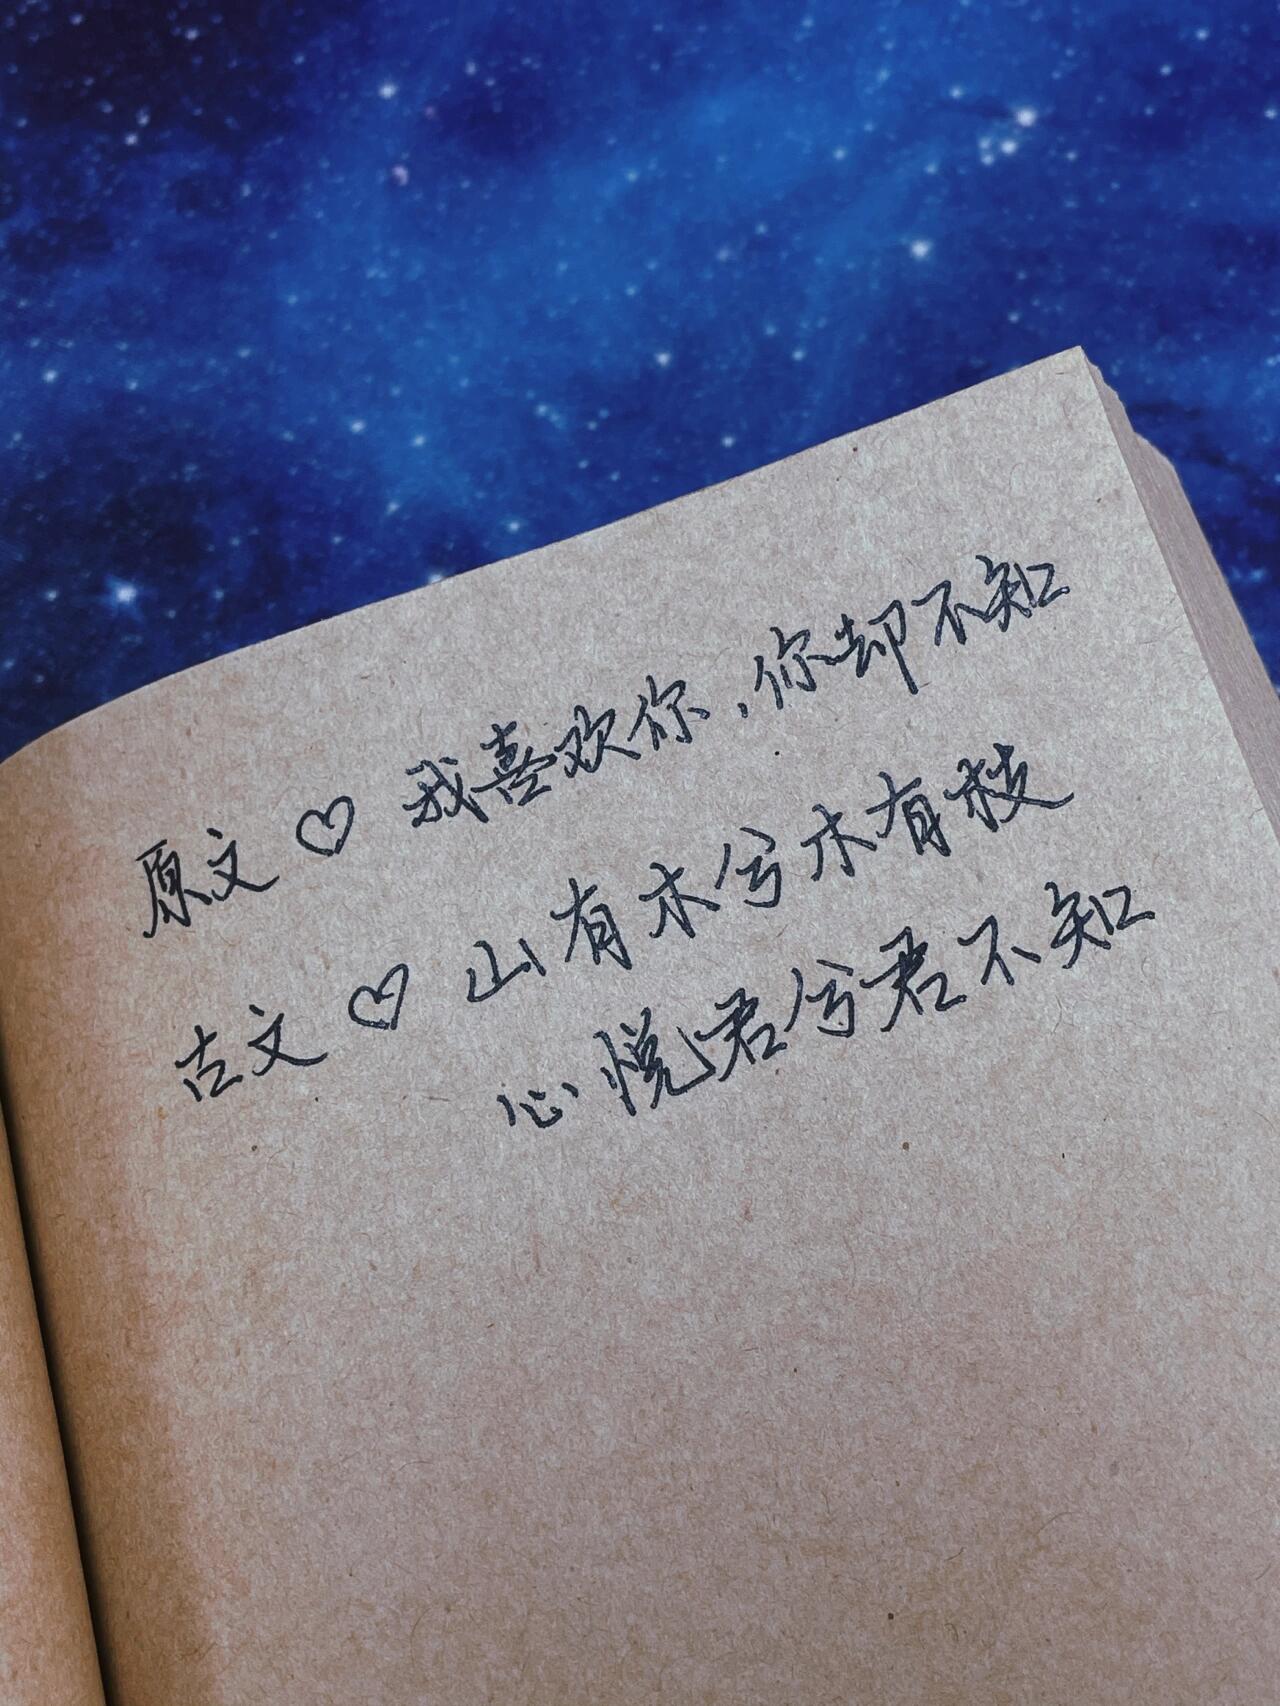 原文♡我喜欢你，你却不知
古文♡山有木兮木有枝
心悦君兮君不知